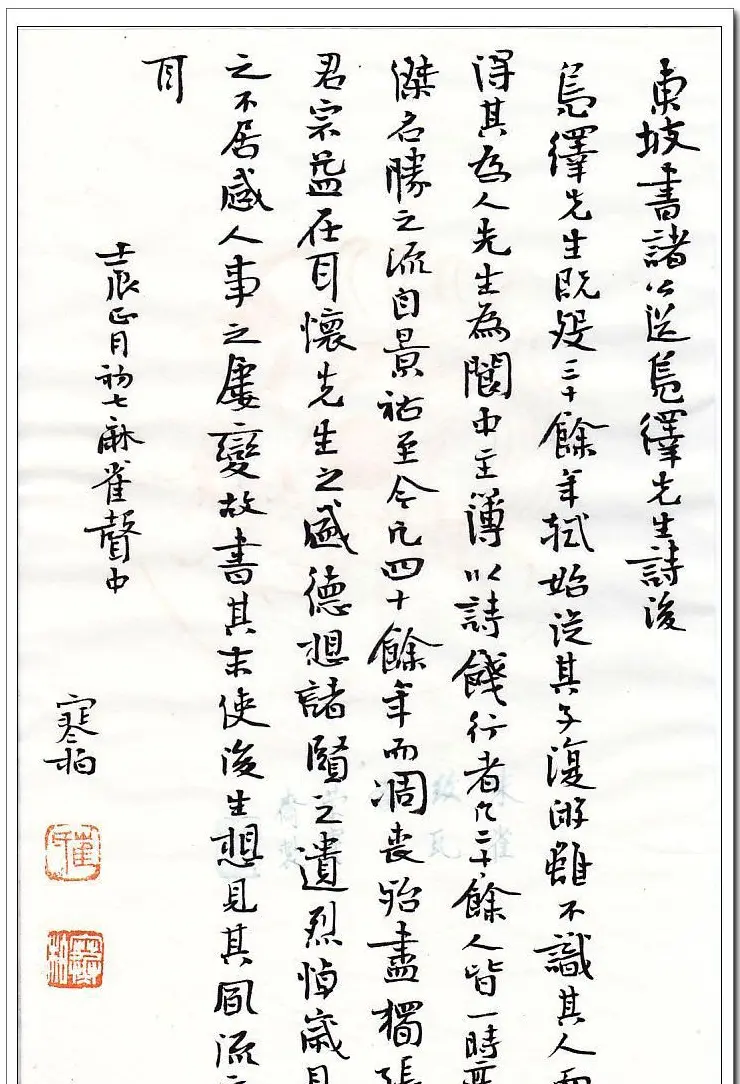 東坡書諸公送鳧繹先生詩後
鳧繹先生既歿三十餘年軾始從其子復游雖不識其人而
得其為人先生為閬中主簿以詩餞行者凡二十餘人皆一時
傑名勝之流自景祐至今凡四十餘年而凋喪殆盡獨張
君宗益在耳懷先生之盛德想諸賢之遺烈悼歲月
之不居感人事之屢變故書其末使後生想見其風流
耳
壬辰正月初七麻雀聲中
寒柏